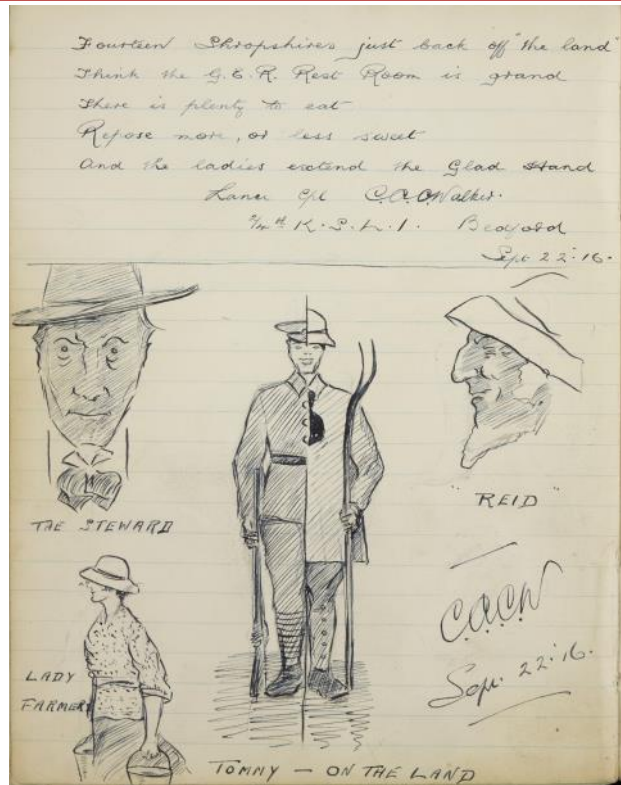 Fourteen Shropshires just back off "the land"
Think the G.E.R. Rest Room is grand
There is plenty to eat
Repose more, or less sweet
And the ladies extend the Glad Hand
Lance Cpl C.A.C. Walker.
2/4th K.S.L.I. Bedford
Sept 22:16.
THE STEWARD
"REID"
LADY
FARMER
C.A.C.W
Sept. 22:16.
TOMMY — ON THE LAND